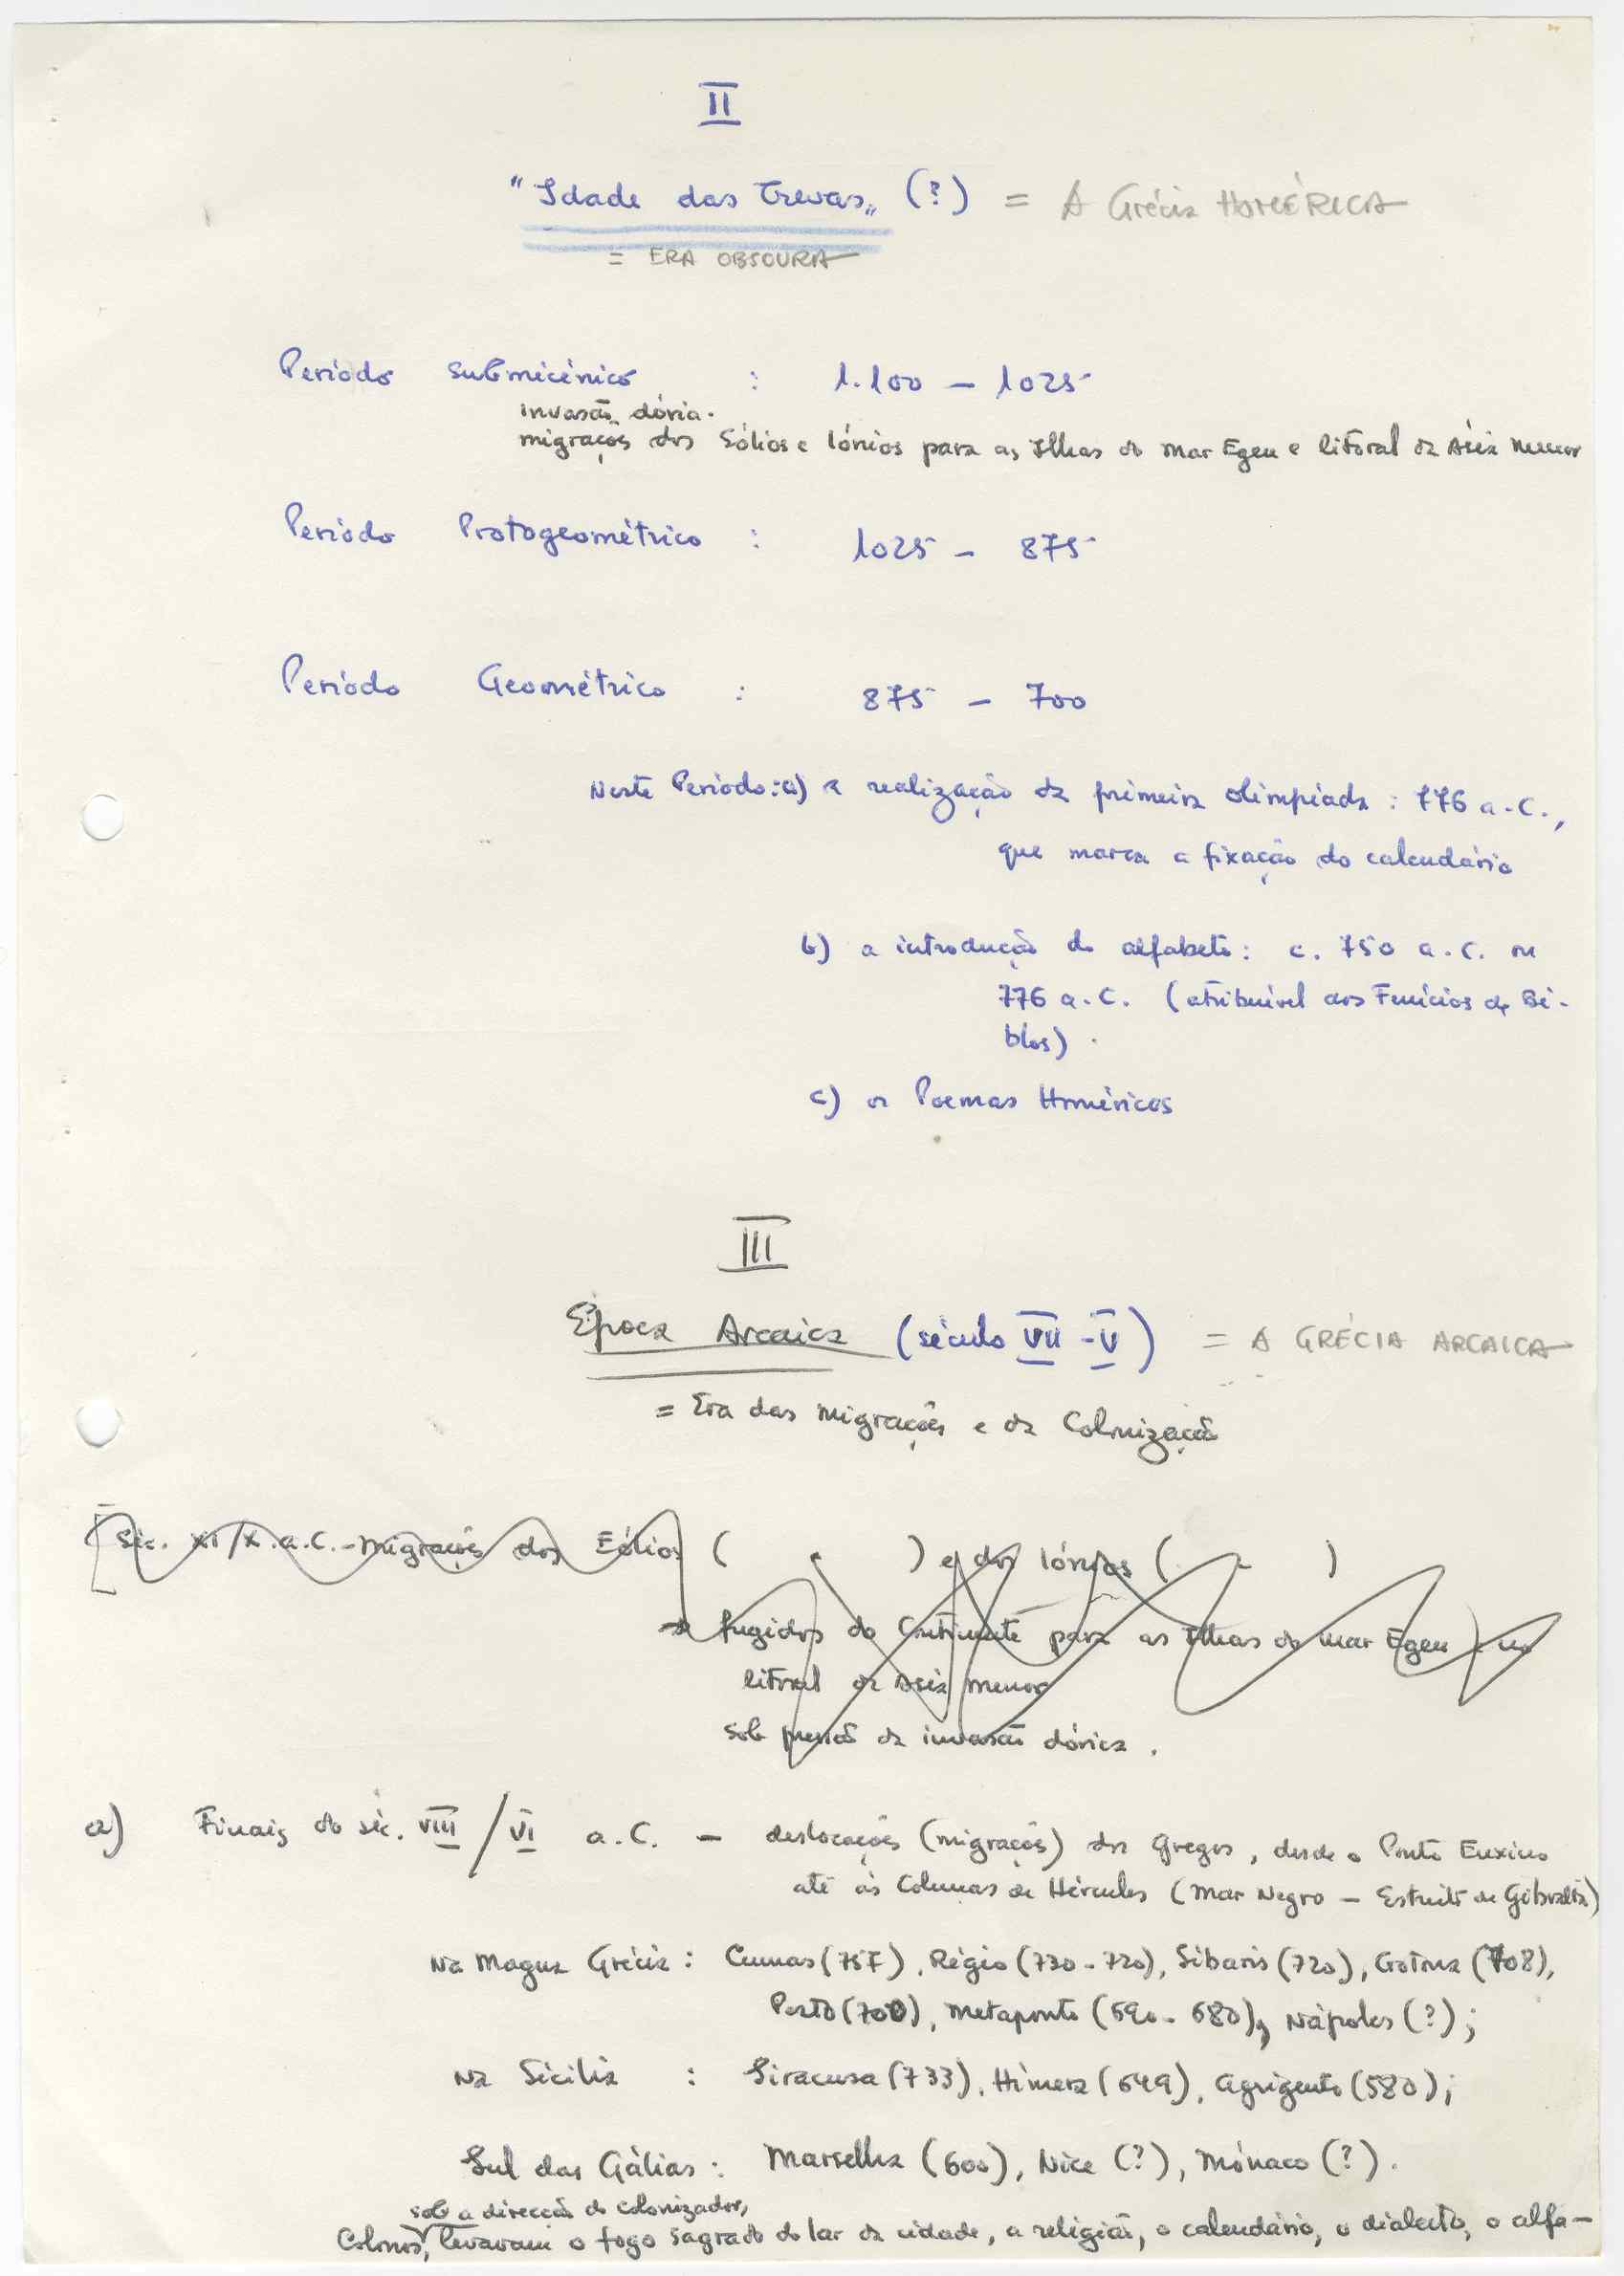 II
"Idade das Trevas" (?) = A Grécia HOMÉRICA
= ERA OBSCURA
Período Submicénico : 1.100 – 1025
invasão dória.
migrações dos Eólios e Iónios para as Ilhas do Mar Egeu e litoral da Ásia Menor
Período Protogeométrico : 1025 – 875
Período Geométrico : 875 – 700
Neste Período: a) a realização da primeira olimpíada : 776 a.C.,
que marca a fixação do calendário
b) a introdução do alfabeto : c. 750 a.C. ou
776 a.C. (atribuível aos Fenícios de Bi-
blos).
c) os Poemas Homéricos
III
Época Arcaica (século VII - V) = A GRÉCIA ARCAICA
= Era das migrações e da Colonização
[Séc. XI/X a.C. - migrações dos Eólios ( ) e dos Iónios ( )
→ fugidos do Continente para as Ilhas do Mar Egeu e no
litoral da Ásia menor
sob pressão da invasão dórica.
a) Finais do séc. VIII / VI a.C. – deslocações (migrações) dos gregos, desde o Ponto Euxino
até às Colunas de Hércules (Mar Negro – Estreito de Gibraltar)
Na Magna Grécia : Cumas (757), Régio (730-720), Síbaris (720), Crotona (708),
(700), Metaponto (690-680), Nápoles (?);
Na Sicília : Siracusa (733), Hímera (649), Agrigento (580);
Sul das Gálias : Marselha (600), Nice (?), Mónaco (?).
sob a direcção do colonizador,
Colonos, levavam o fogo sagrado do lar da cidade, a religião, o calendário, o dialecto, o alfa-